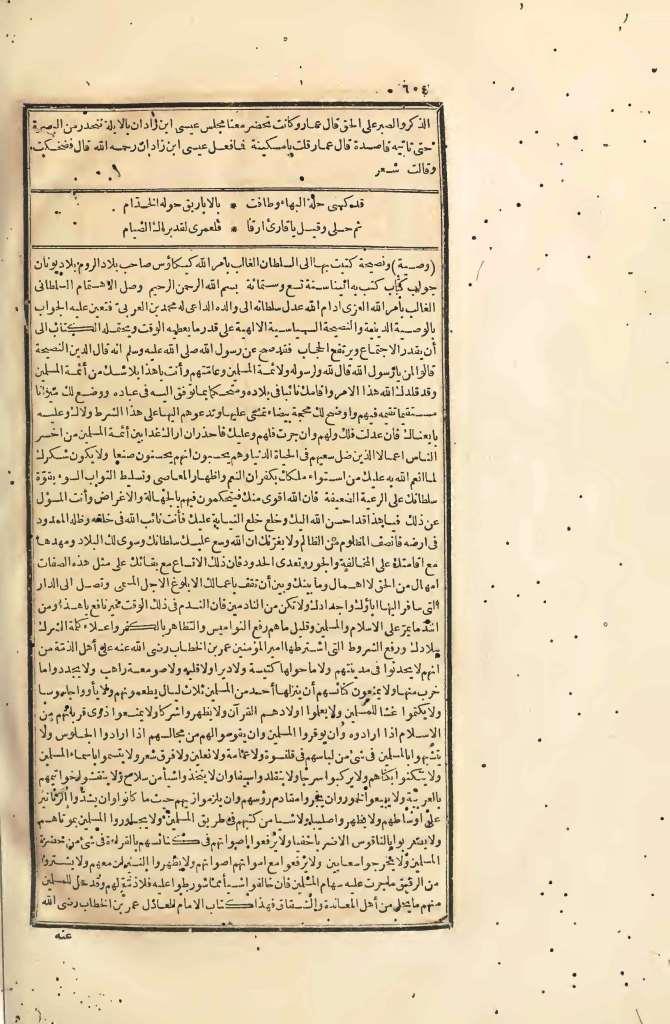 ٦٠٤
الذكر والصبر على الحق قال عمار وكانت تحضر معنا مجلس عيسى ابن زاذان بالابلة تنحدر من البصرة
حتى تأتيه قاصدة قال عمار قلت يا مسكينة ما فعل عيسى ابن زاذان رحمه الله قال فضحكت
وقالت شعر
قد كسى حلة البهاء وطافت * بالاباريق حوله الخدام
ثم حلى وقيل يا قارئ ارقا * فلعمرى لقد برالك الصيام
(وصية) ونصيحة كتبت بها الى السلطان الغالب بأمر الله كيكاوس صاحب بلاد الروم بلاد يونان
جواب كتاب كتب به الينا سنة تسع وستمائة بسم الله الرحمن الرحيم وصل الاهتمام السلطانى
الغالب بأمر الله العزى ادام الله عدل سلطانه الى والده الداعى له محمد بن العربى فتعين عليه الجواب
بالوصية الدينية والنصيحة السياسية الالهية على قدر ما يعطيه الوقت ويحتمله الكتاب الى
أن يقدر الاجتماع ويرتفع الحجاب فقد صح عن رسول الله صلى الله عليه وسلم انه قال الدين النصيحة
قالوا لمن يا رسول الله قال لله ولرسوله ولائمة المسلمين وعامتهم وأنت يا هذا بلا شك من أئمة المسلمين
وقد قلدك الله هذا الامر وأقامك نائبا فى بلاده ومتحكما بما توفق اليه فى عباده ووضع لك ميزانا
مستقيما تقيمه فيهم وأوضح لك محجة بيضاء تمشى عليها وتدعوهم اليها على هذا الشرط ولاك وعليه
بايعناك فان عدلت فلك ولهم وان جرت فلهم وعليك فاحذر ان اراك غدا بين أئمة المسلمين من اخسر
الناس اعمالا الذين ضل سعيهم فى الحياة الدنيا وهم يحسبون انهم يحسنون صنعا ولا يكون شكرك
لما انعم الله به عليك من استواء ملكك بكفران النعم واظهار المعاصى وتسليط النواب السوء بقوة
سلطانك على الرعية الضعيفة فان الله اقوى منك فيتحكمون فيهم بالجهالة والاغراض وأنت المسؤل
عن ذلك فيا هذا قد احسن الله اليك وخلع خلع النيابة عليك فأنت نائب الله فى خلقه وظله الممدود
فى ارضه فأنصف المظلوم من الظالم ولا يغرنك ان الله وسع عليك سلطانك وسوى لك البلاد ومهدها
مع اقامتك على المخالفة والجور وتعدى الحدود فان ذلك الاتساع مع بقائك على مثل هذه الصفات
امهال من الحق لا اهمال وما بينك وبين أن تقف بأعمالك الا بلوغ الاجل المسمى وتصل الى الدار
التى سافر اليها اباؤك واجدادك ولا تكن من النادمين فان الندم فى ذلك الوقت غير نافع يا هذا ومن
اشد ما يمر على الاسلام والمسلمين وقليل ما هم رفع النواقيس والتظاهر بالكفر واعلاء كلمة الشرك
ببلادك ورفع الشروط التى اشترطها امير المؤمنين عمر بن الخطاب رضى الله عنه على أهل الذمة من
انهم لا يحدثوا فى مدينتهم ولا ما حولها كنيسة ولا ديرا ولا قلية ولا صومعة راهب ولا يجددوا ما
خرب منها ولا يمنعون كنائسهم أن ينزلها أحد من المسلمين ثلاث ليال يطعمونهم ولا يأووا جاسوسا
ولا يكتموا غشا للمسلمين ولا يعلموا اولادهم القرآن ولا يظهروا شركا ولا يمنعوا ذوى قرباتهم من
الاسلام اذا ارادوه وأن يوقروا المسلمين وان يقوموا لهم من مجالسهم اذا ارادوا الجلوس ولا
يتشبهوا بالمسلمين فى شئ من لباسهم فى قلنسوة ولا عمامة ولا نعلين ولا فرق شعر ولا يتسموا باسماء المسلمين
ولا يتكنوا بكناهم ولا يركبوا سرجا ولا يتقلدوا سيفا وان لا يتخذوا شيأ من سلاح ولا ينقشوا خواتيمهم
بالعربية ولا يبيعوا الخمور وان يجزوا مقادم رؤسهم وان يلزموا زيهم حيث ما كانوا وان يشدوا الزنانير
على أوساطهم ولا يظهروا صليبا ولا شيأ من كتبهم فى طريق المسلمين ولا يجاوروا المسلمين بموتاهم
ولا يضربوا بالناقوس الا ضربا خفيفا ولا يرفعوا اصواتهم فى كنائسهم بالقراءة فى شئ من حضرة
المسلمين ولا يخرجوا سعانين ولا يرفعوا مع امواتهم اصواتهم ولا يظهروا النيران معهم ولا يشتروا
من الرقيق ما جرت عليه سهام المسلمين فان خالفوا شيأ مما شورطوا عليه فلا ذمة لهم وقد حل للمسلمين
منهم ما يحل من أهل المعاندة والشقاق فهذا كتاب الامام العادل عمر بن الخطاب رضى الله
عنه